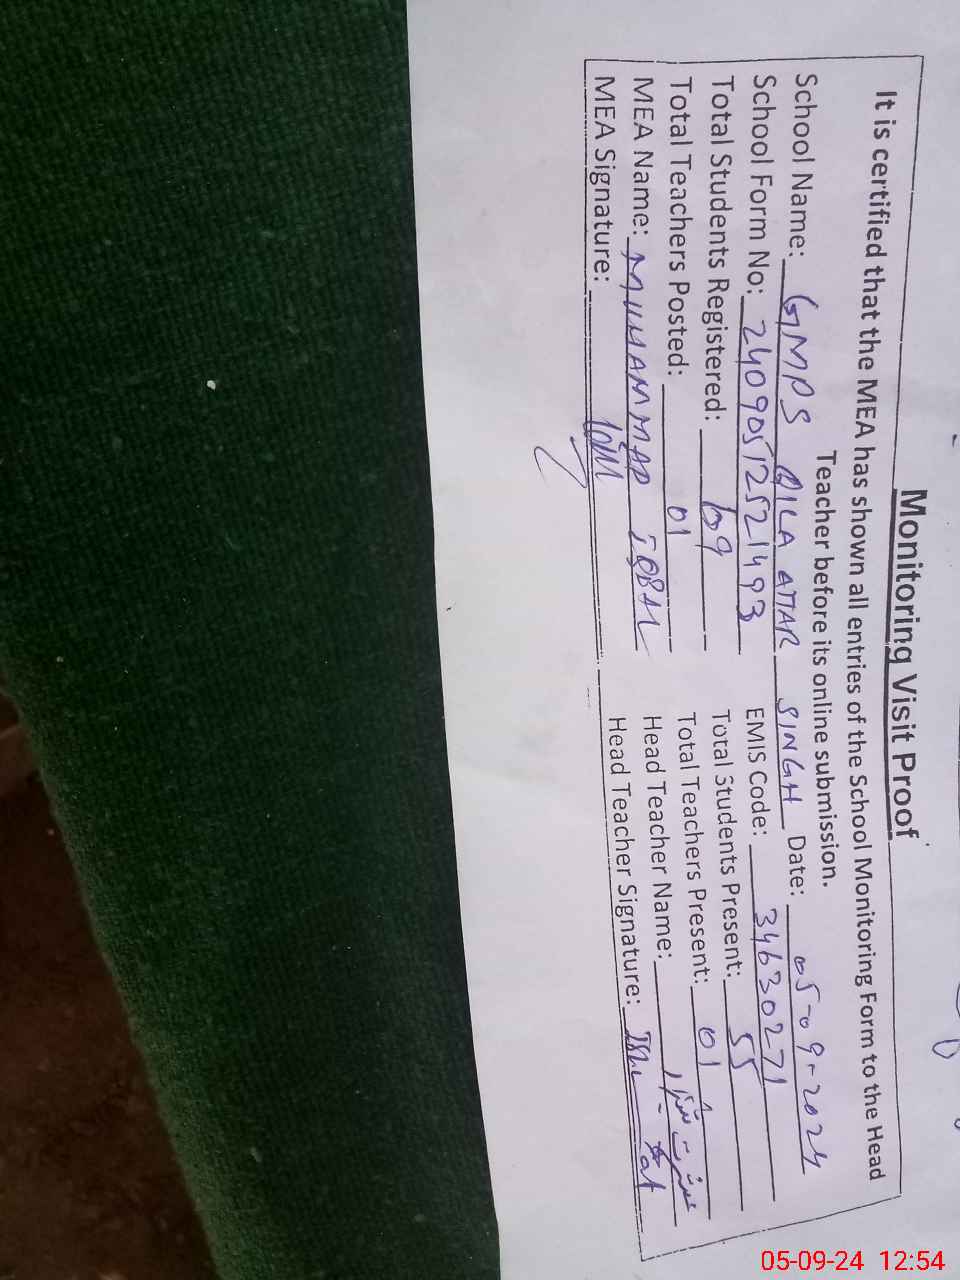 Monitoring Visit Proof
It is certified that the MEA has shown all entries of the School Monitoring Form to the Head
Teacher before its online submission.
School Name: GMPS QILA ATTAR SINGH Date: 05-09-2024
School Form No: 24090512521493 EMIS Code: 34630271
Total Students Registered: 69 Total Students Present: 55
Total Teachers Posted: 01 Total Teachers Present: 01
MEA Name: MUHAMMAD IQBAL Head Teacher Name:
MEA Signature: Head Teacher Signature:
05-09-24 12:54